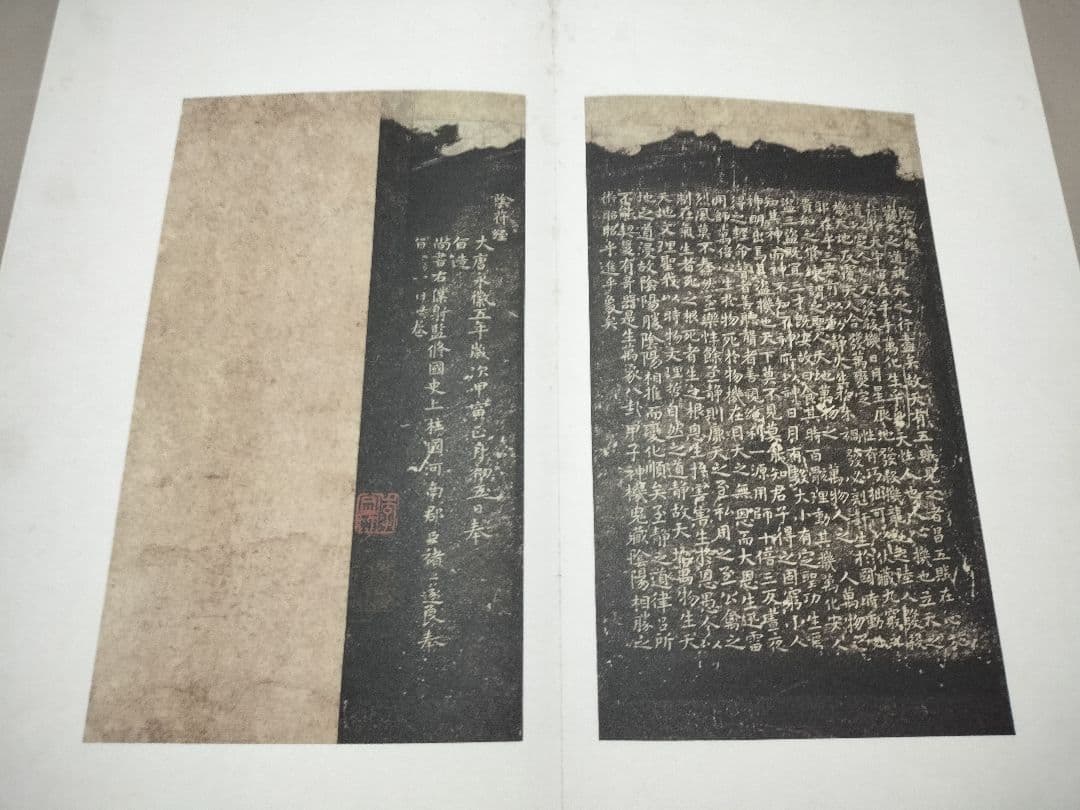 陰符經
觀天之道執天之行盡矣故天有五賊見之者昌五賊在心
行於天宇宙在乎手萬化生乎身天性人也人心機也立天之
道以定人也天發殺機日月星辰地發殺機龍蛇起陸人發殺
機天地反覆天人合發萬變定 性有巧拙可以伏藏九竅之
邪在乎三要可以動靜火生於木禍發必剋 生於國時動必
潰知之修練謂之聖人天地萬物之 萬物人之 人萬物之
盜三盜既宜三才既安故曰食其時百骸理動其機萬化安人
知其神而神不知不神所以神日月有數大小有定聖功生焉
神明出焉其盜機也天下莫不見莫能知君子得之固窮小人
得之輕命瞽者善聽聾者善視絕利一源用師十倍三反晝夜
用師萬倍心生於物死於物機在目天之無恩而大恩生迅雷
烈風莫不蠢然至樂性餘至靜則廉天之至私用之至公禽之
制在氣生者死之根死者生之根恩生於害害生於恩愚人以
天地文理聖我以時物文理哲自然之道靜故天地萬物生天
地之道浸故陰陽勝陰陽相推而變化順矣至靜之道律呂所
不能契爰有奇器是生萬象八卦甲子神機鬼藏陰陽相勝之
術昭昭乎進乎象矣
陰符經
大唐永徽五年歲次甲寅正月初五日奉
旨造
尚書右僕射監修國史上柱國河南郡臣褚遂良奉
旨